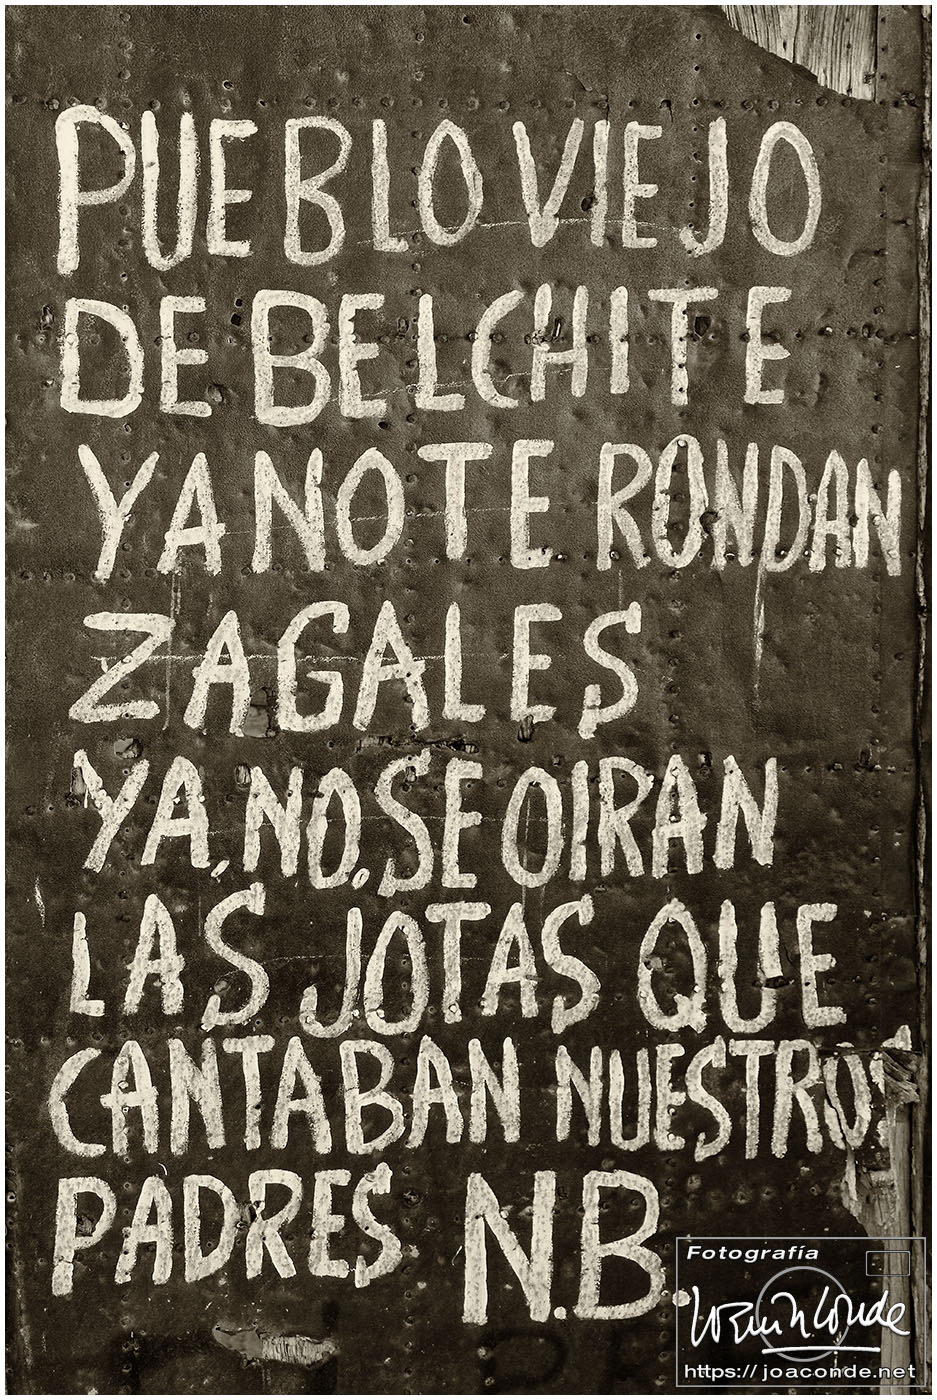 PUEBLO VIEJO
DE BELCHITE
YA NO TE RONDAN
ZAGALES
YA, NO, SE OIRAN
LAS JOTAS QUE
CANTABAN NUESTROS
PADRES N.B.
Fotografía
https://joaconde.net